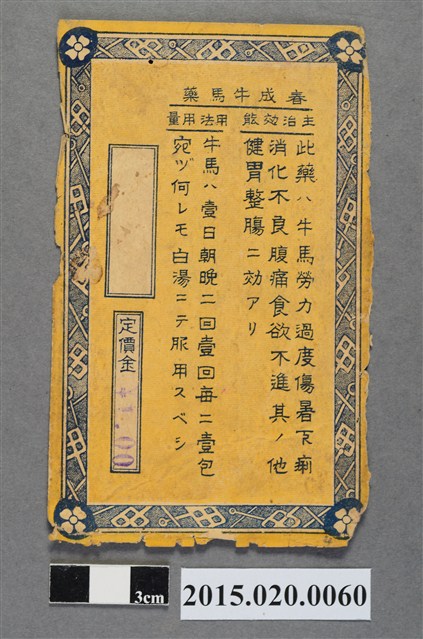 春成牛馬藥
主治效能 用法用量
此藥ハ牛馬勞力過度傷暑下痢
消化不良腹痛食欲不進其ノ他
健胃整腸ニ効アリ
牛馬ハ壹日朝晩二回壹回每ニ壹包
宛ヅ何レモ白湯ニテ服用スベシ
定價金
3cm
2015.020.0060